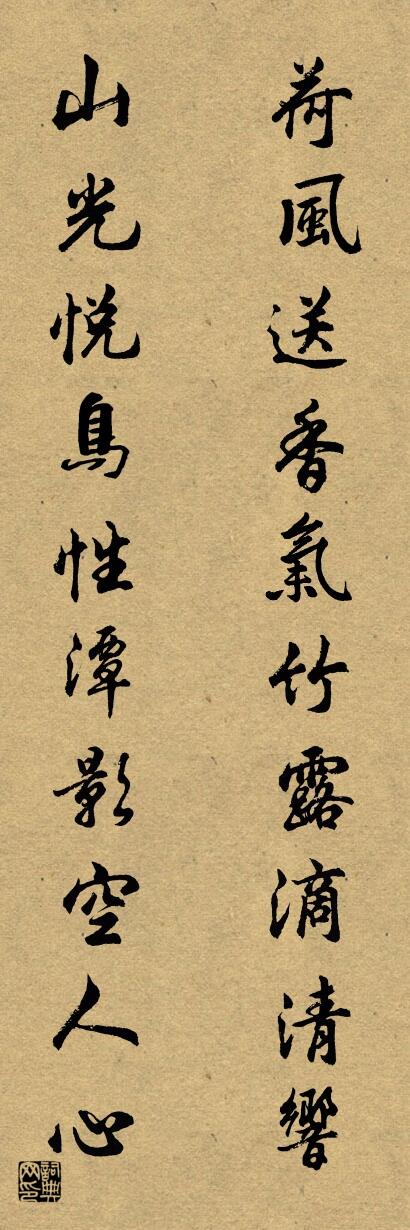 荷風送香氣竹露滴清響
山光悦鳥性潭影空人心
詞典網印